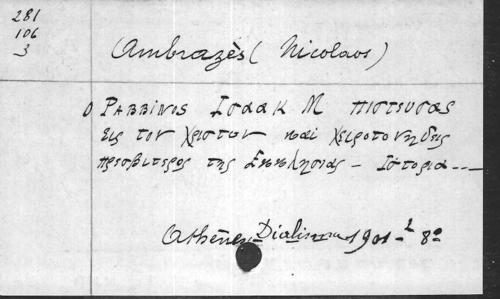 281
106
3
Ambrazès (Nicolaos)
Ο Ραββινος Ισαακ Μ πιστευσας
εις τον Χριστον και χειροτονηθεις
πρεσβυτερος της Εκκλησιας – Ιστορια ---
Athènes 1901 – 8º